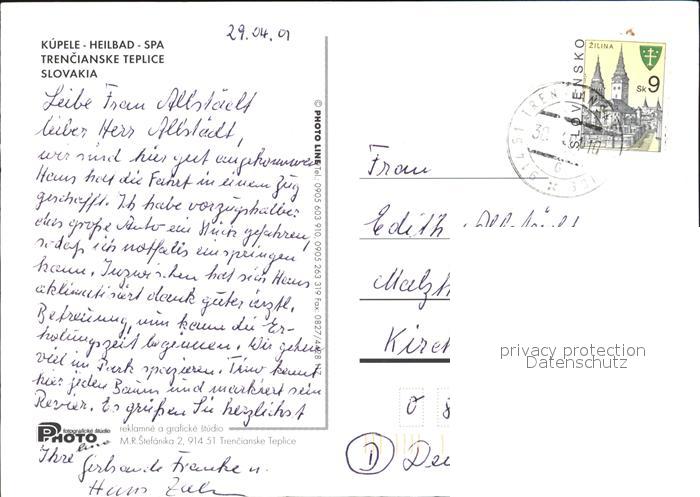 29.04.01
KÚPELE - HEILBAD - SPA
TRENČIANSKE TEPLICE
SLOVAKIA
Liebe Frau Altstädt
lieber Herr Altstädt,
wir sind hier gut angekommen
Hans hat die Fahrt in einem Zug
geschafft. Ich habe vorzugshalber
das große Auto ein Stück gefahren,
sodaß ich notfalls einspringen
kann. Inzwischen hat sich Hans
aklimatisiert dank guter ärztl.
Betreuung, nun kann die Er-
holungszeit beginnen. Wir gehen
viel im Park spazieren. Timo kennt
hier jeden Baum und markiert sein
Revier. Es grüßen Sie herzlichst
Ihre
Franke u.
Hans
fotografické štúdio
PHOTO line
reklamné a grafické štúdio
M.R.Štefánika 2, 914 51 Trenčianske Teplice
© PHOTO LINE Tel.: 0905 603 910, 0905 263 319 Fax: 0827/4428
ŽILINA
SLOVENSKO
Sk 9
914 51 TREN
30
Frau
Edith
Malzh
Kirch
privacy protection
Datenschutz
D Deu